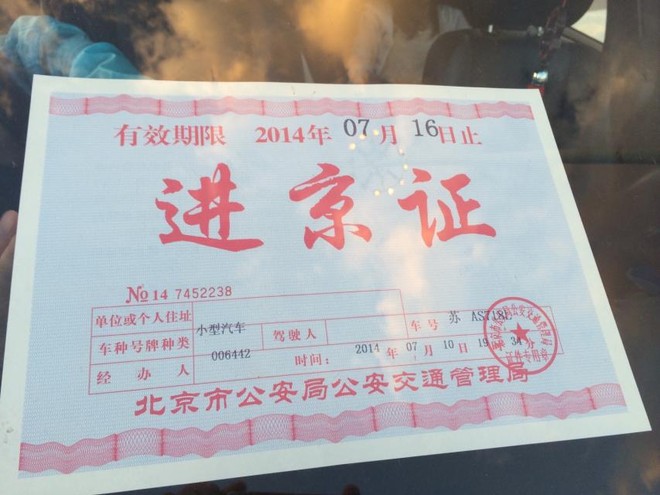 有效期限 2014年 07月 16日止
进京证
№ 14 7452238
单位或个人住址
车种号牌种类 小型汽车 驾驶人 车号 苏
经办人 006442 时间: 2014 年 07 月 10 日 19 34 分
北京市公安局公安交通管理局
证件专用章